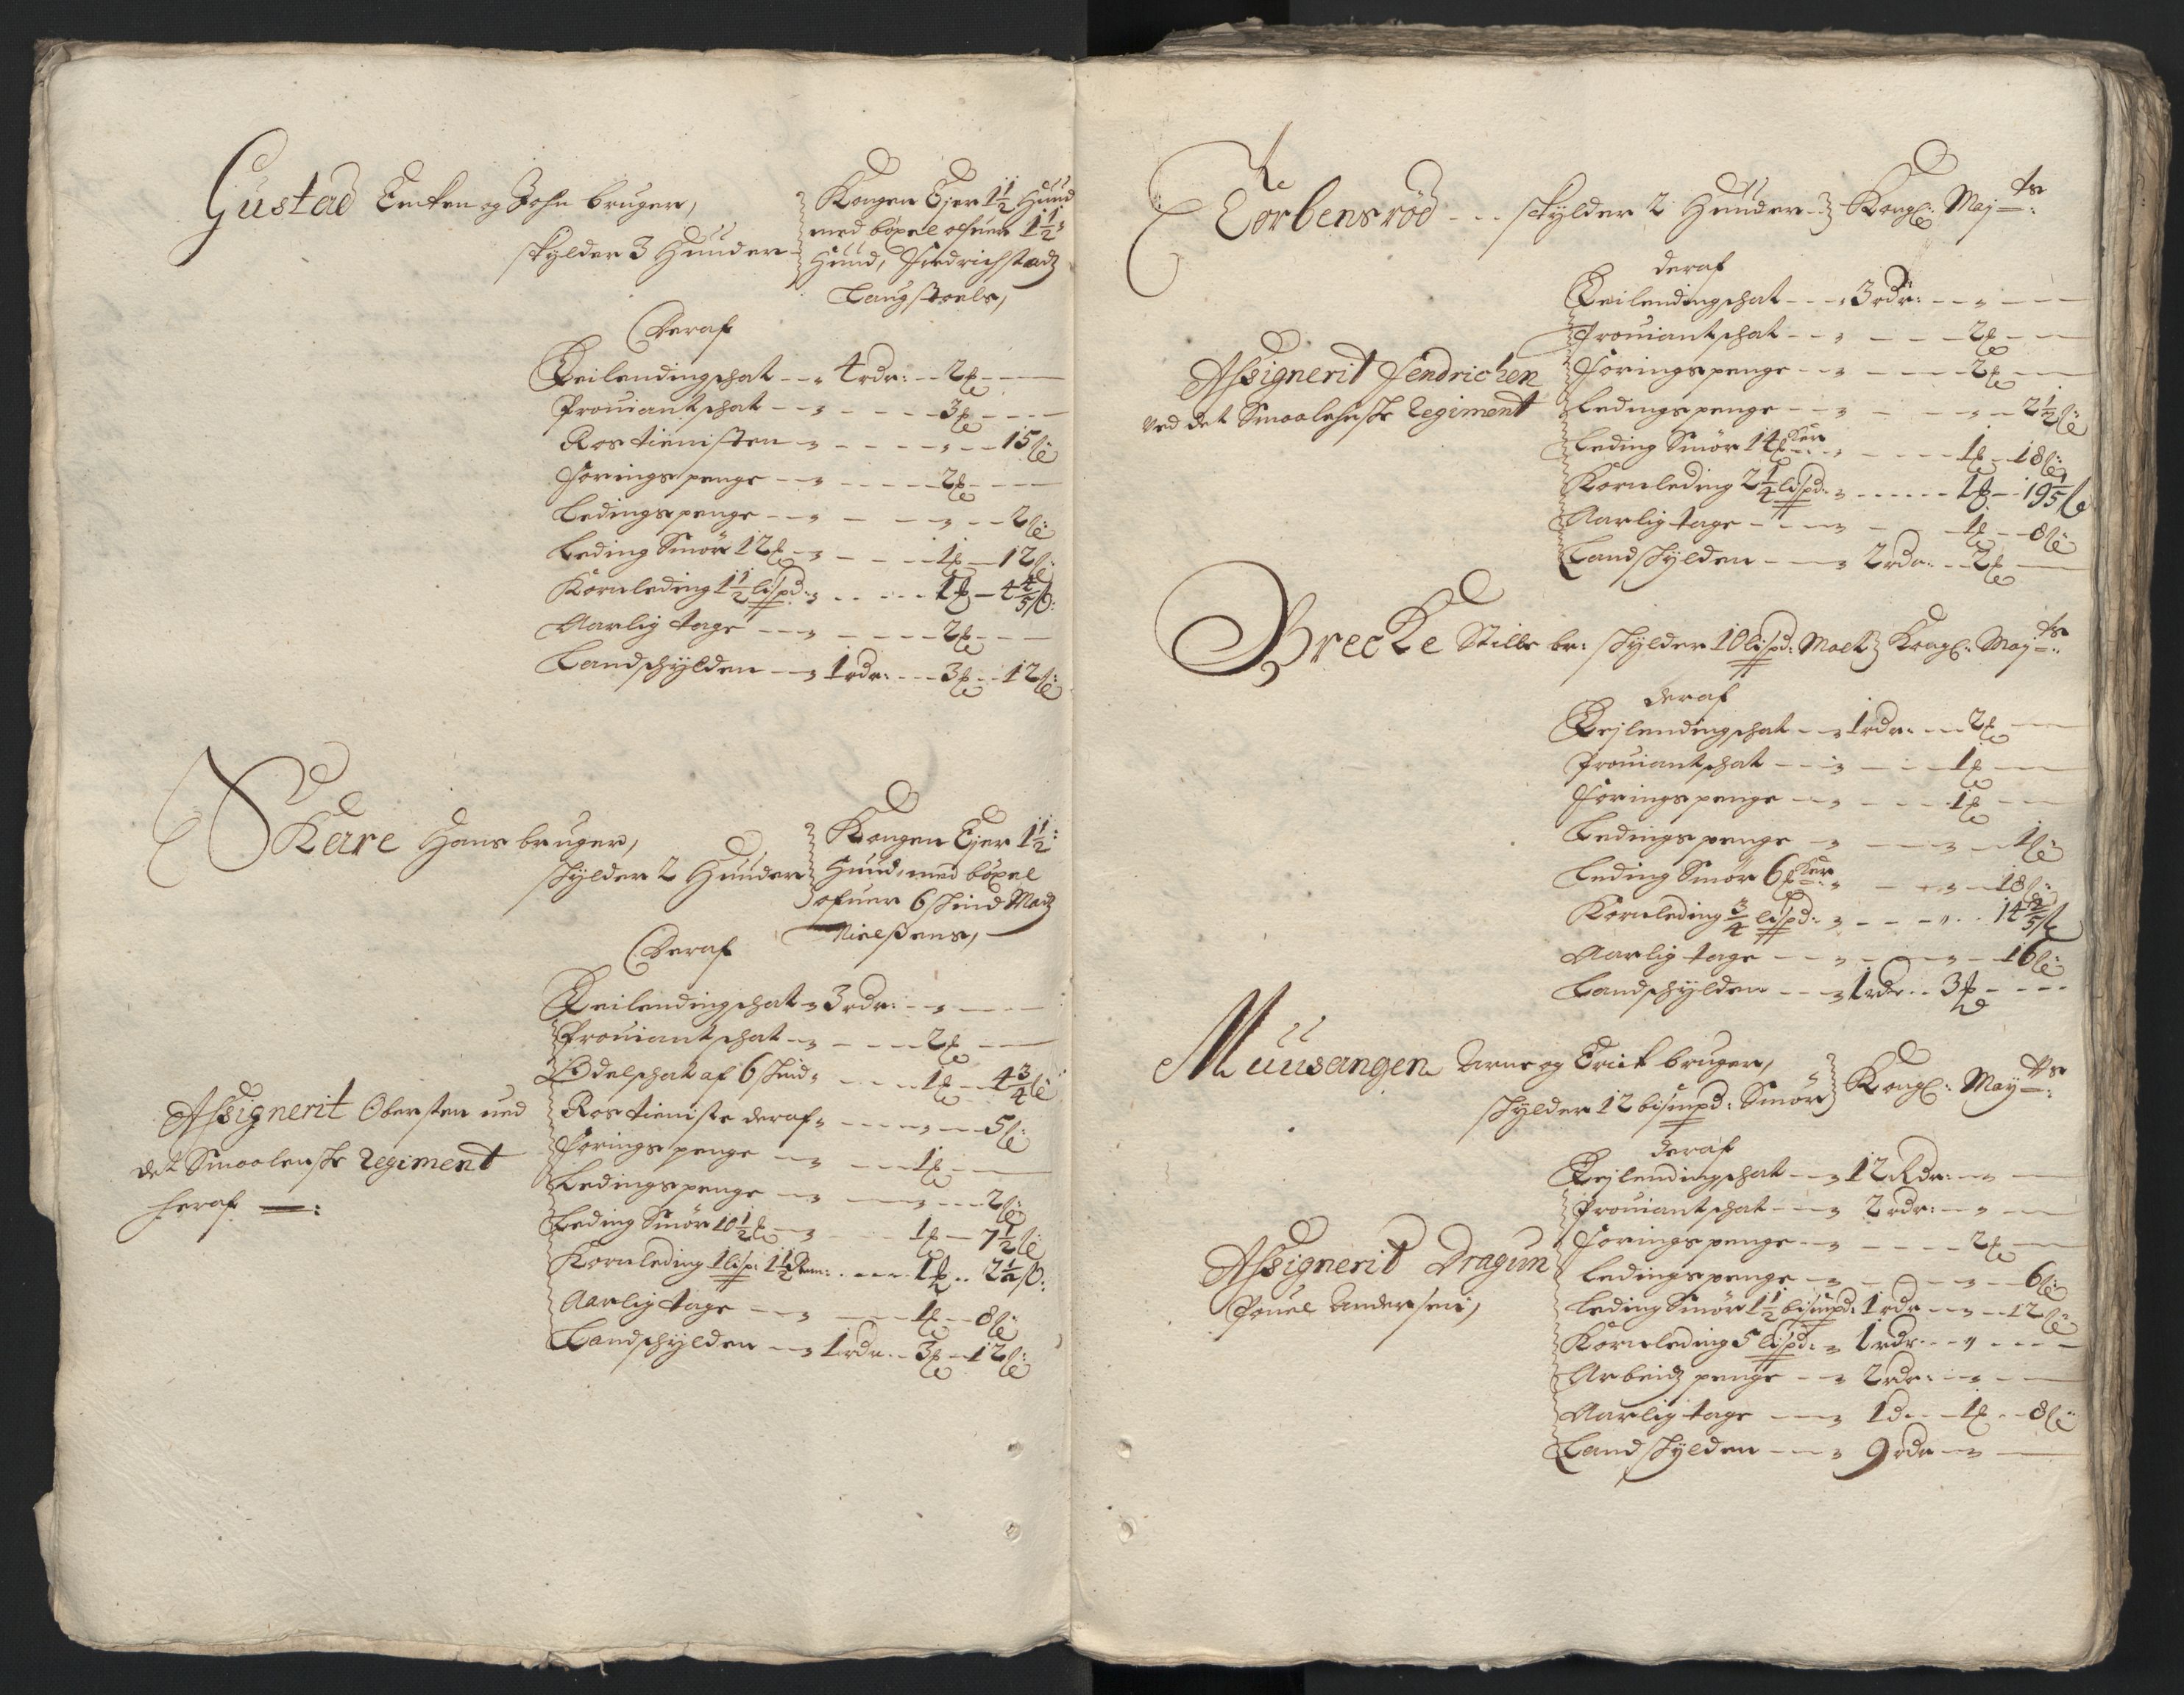 Gustad Enken og John bruger,
skylder 3 Huuder
Kongen Ejer 1½ Huud
med böxel ofuer 1½
Huud, Fredrichstadz
Laugstoels,
Deraf
Leilendingschat -- 4 rdr: -- 2 ₰ ---
Prouiantschat --- 3 ₰ ---
Rostienisten --- 15 ß:
Foringspenge --- 2 ₰ ---
Ledingspenge --- 2 ß:
Leding Smör 12 ₰ --- 1 ₰ -- 12 ß:
Kornleding 1½ lispd: --- 1 ₰ -- 4 4/5 ß:
Aarlig tage --- 2 ₰ ---
Landschylden -- 1 rdr: -- 3 ₰ -- 12 ß:
Skare Hans bruger,
skylder 2 Huuder
Kongen Ejer 1½
Huud, med böxel
ofuer 6 skind Madz
Nielßens,
Deraf
Leilendingschat - 3 rdr: ---
Prouiantschat --- 2 ₰ ---
Odelschat af 6 skind --- 1 ₰ -- 4¾ ß
Rostieniste deraf --- 5 ß:
Foringspenge --- 1 ₰ ---
Ledingspenge --- 2 ß:
Leding Smör 10½ ₰ --- 1 ₰ -- 7½ ß
Kornleding 1 lisp: 1½ --- 1 ₰ -- ß:
Aarlig tage --- 1 ₰ -- 8 ß:
Landschylden -- 1 rdr: -- 3 ₰ -- 12 ß:
Assignerit Obersten ued
det Smaalenske Regiment
heraf —:
Torbensröd -- skylder 2 Huuder Kongl: Maj ts:
deraf
Leilendingschat --- 3 rdr: ---
Prouiantschat --- 2 ₰ ---
Foringspenge --- 2 ₰ ---
Ledingspenge --- 2½ ß:
Leding Smör 14 --- 1 ₰ - 18 ß:
Kornleding 2¼ lispd: --- 1 ₰ -- 19 1/5 ß
Aarlig tage --- 1 ₰ -- 8 ß:
Landskylden --- 2 rdr: -- 2 ₰ ---
Assignerit Fendrichen
ved det Smaalehnske Regiment
Brecke Stille br: skylder 10 lispd: Malt Kongl: Maj ts:
deraf
Lejlendingschat -- 1 rdr: -- 2 ₰ ---
Prouiantschat --- 1 ₰ ---
Foringspenge --- 1 ₰ ---
Ledingspenge --- 1 ß:
Leding Smör 6 --- 18 ß:
Kornleding ¾ lispd: --- 14 2/5 ß
Aarlig tage --- 16 ß:
Landschylden -- 1 rdr -- 3 ₰ ---
Muusangen Arne og Erick bruger,
skylder 12 bismpd: Smör
Kongl: May ts:
deraf
Lejlendingschat -- 12 Rdr: ---
Prouiantschat --- 2 rdr: ---
Foringspenge --- 2 ₰ ---
Ledingspenge --- 6 ß:
Leding Smör 1½ bismpd: 1 rdr --- 12 ß:
Kornleding 5 lispd: - 1 rdr: ---
Arbeidz penge -- 2 rdr: ---
Aarlig tage --- 1 d -- 1 ₰ -- 8 ß:
Landskylden --- 9 rdr ---
Assignerit Dragun
Pouel Andersen,